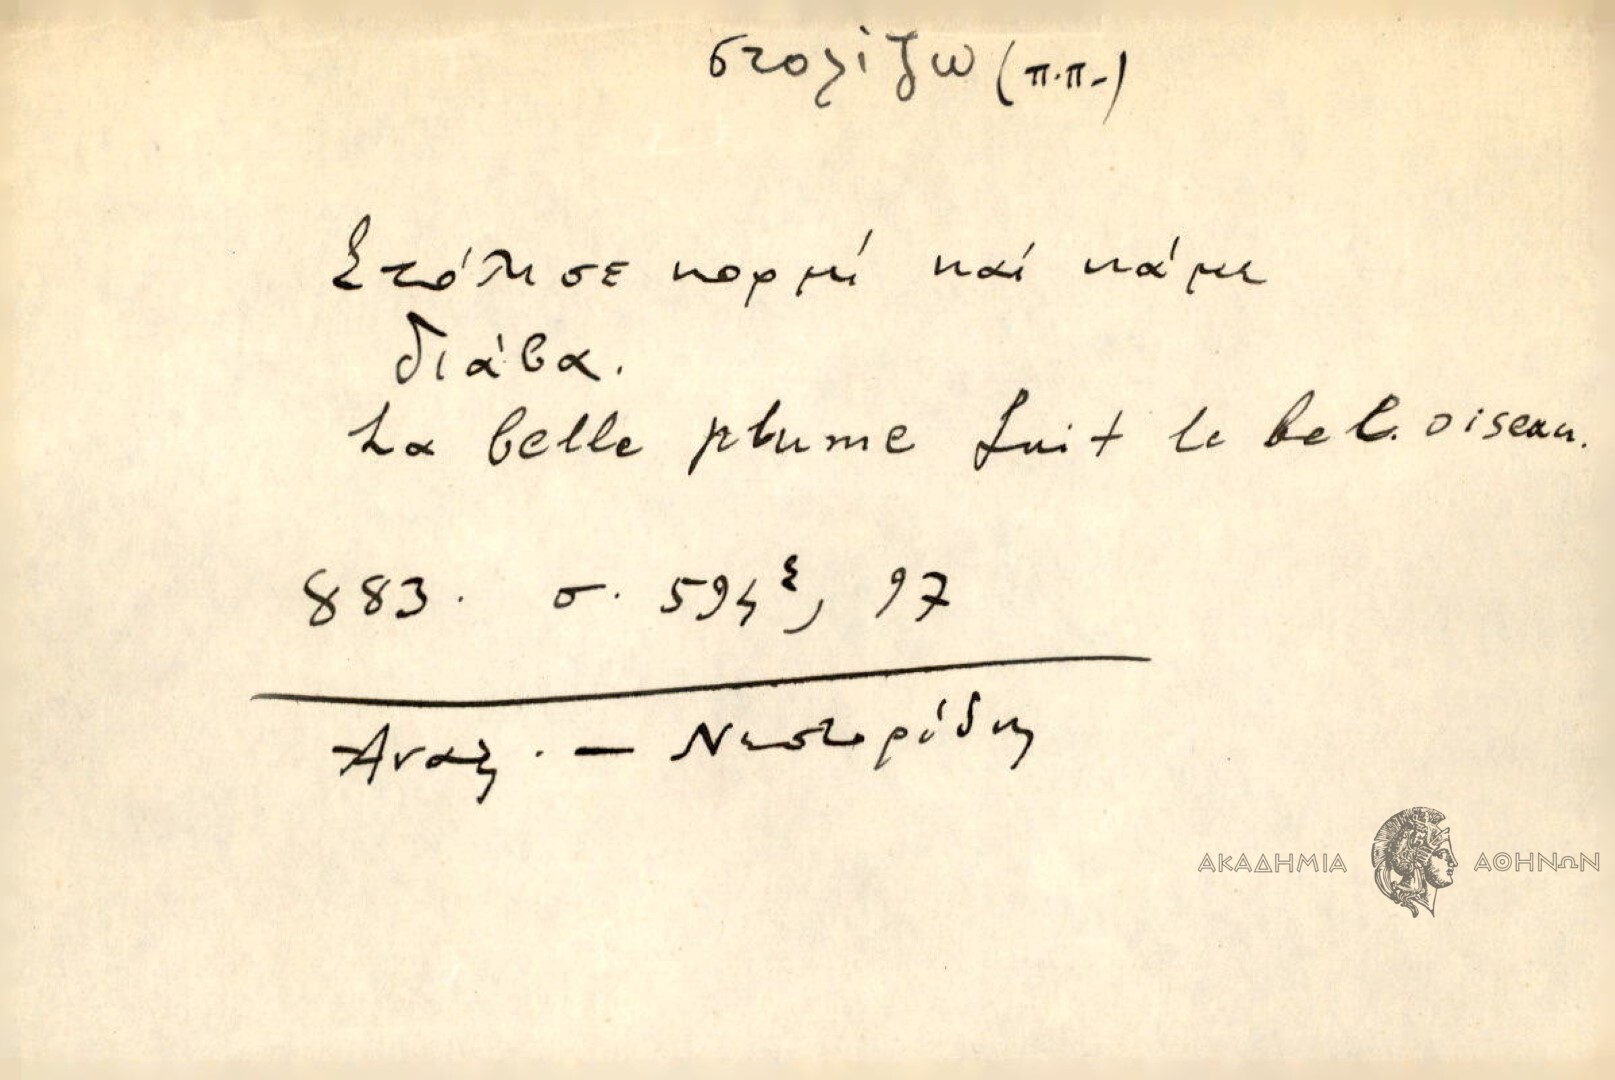 στολίζω (π.π.)
Στόλισε κορμί καί κάμε
διάβα.
La belle plume fait le bel oiseau.
883. σ. 594ξ, 97
Αναξ. — Νεστορίδη
ΑΚΑΔΗΜΙΑ ΑΘΗΝΩΝ